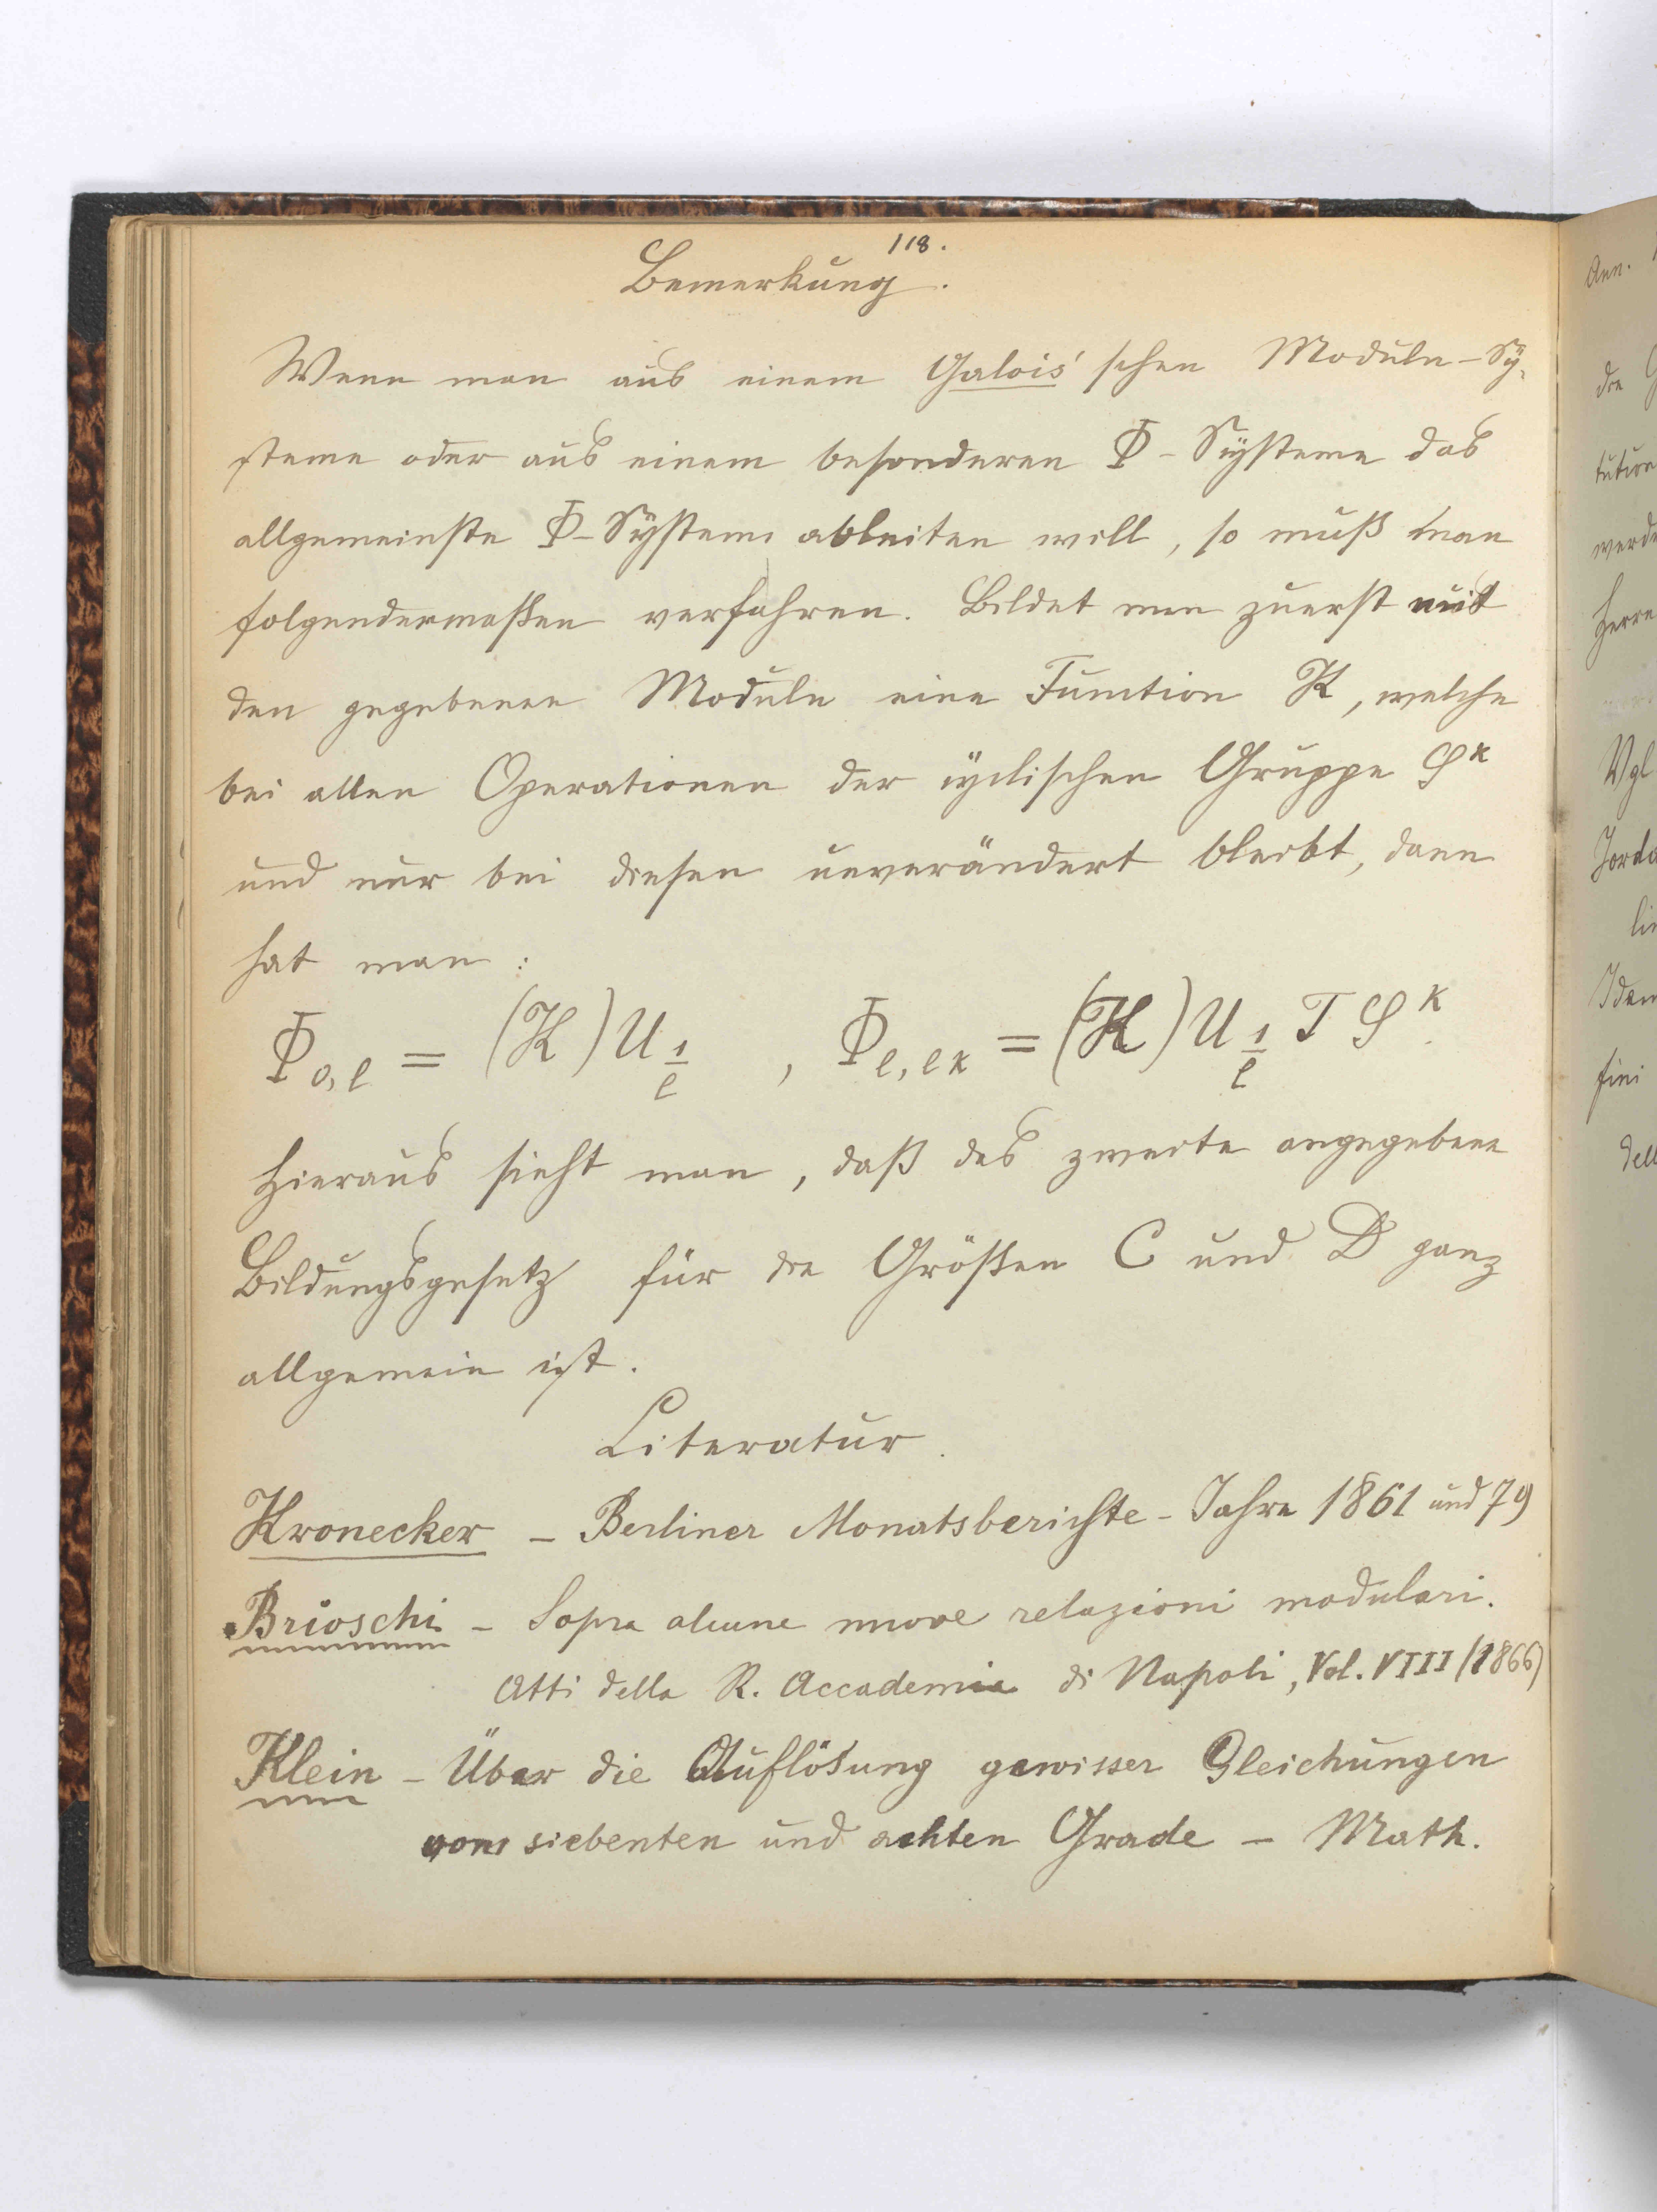 118.
Bemerkung.
Wenn man aus einem Galois'schen Moduln-Sy-
steme oder aus einem besonderen Φ-Systeme das
allgemeinste Φ-System ableiten will, so muß man
folgendermaßen verfahren. Bildet man zuerst mit
den gegebenen Moduln eine Function K, welche
bei allen Operationen der cyclischen Gruppe S^k
und nur bei diesen unverändert bleibt, dann
hat man:
Φ_{0,l} = (K) U_{1/l} , Φ_{l,lk} = (K) U_{1/l} T S^k.
Hieraus sieht man, daß das zweite angegebene
Bildungsgesetz für die Größen C und D ganz
allgemein ist.
Literatur.
Kronecker – Berliner Monatsberichte – Jahre 1861 und 79
Brioschi – Sopra alcune nuove relazioni modulari.
Atti della R. Accademia di Napoli, Vol. VIII (1866)
Klein – Über die Auflösung gewisser Gleichungen
vom siebenten und achten Grade – Math.
Ann.
die
tution
Vgl
Idem
fini
dell